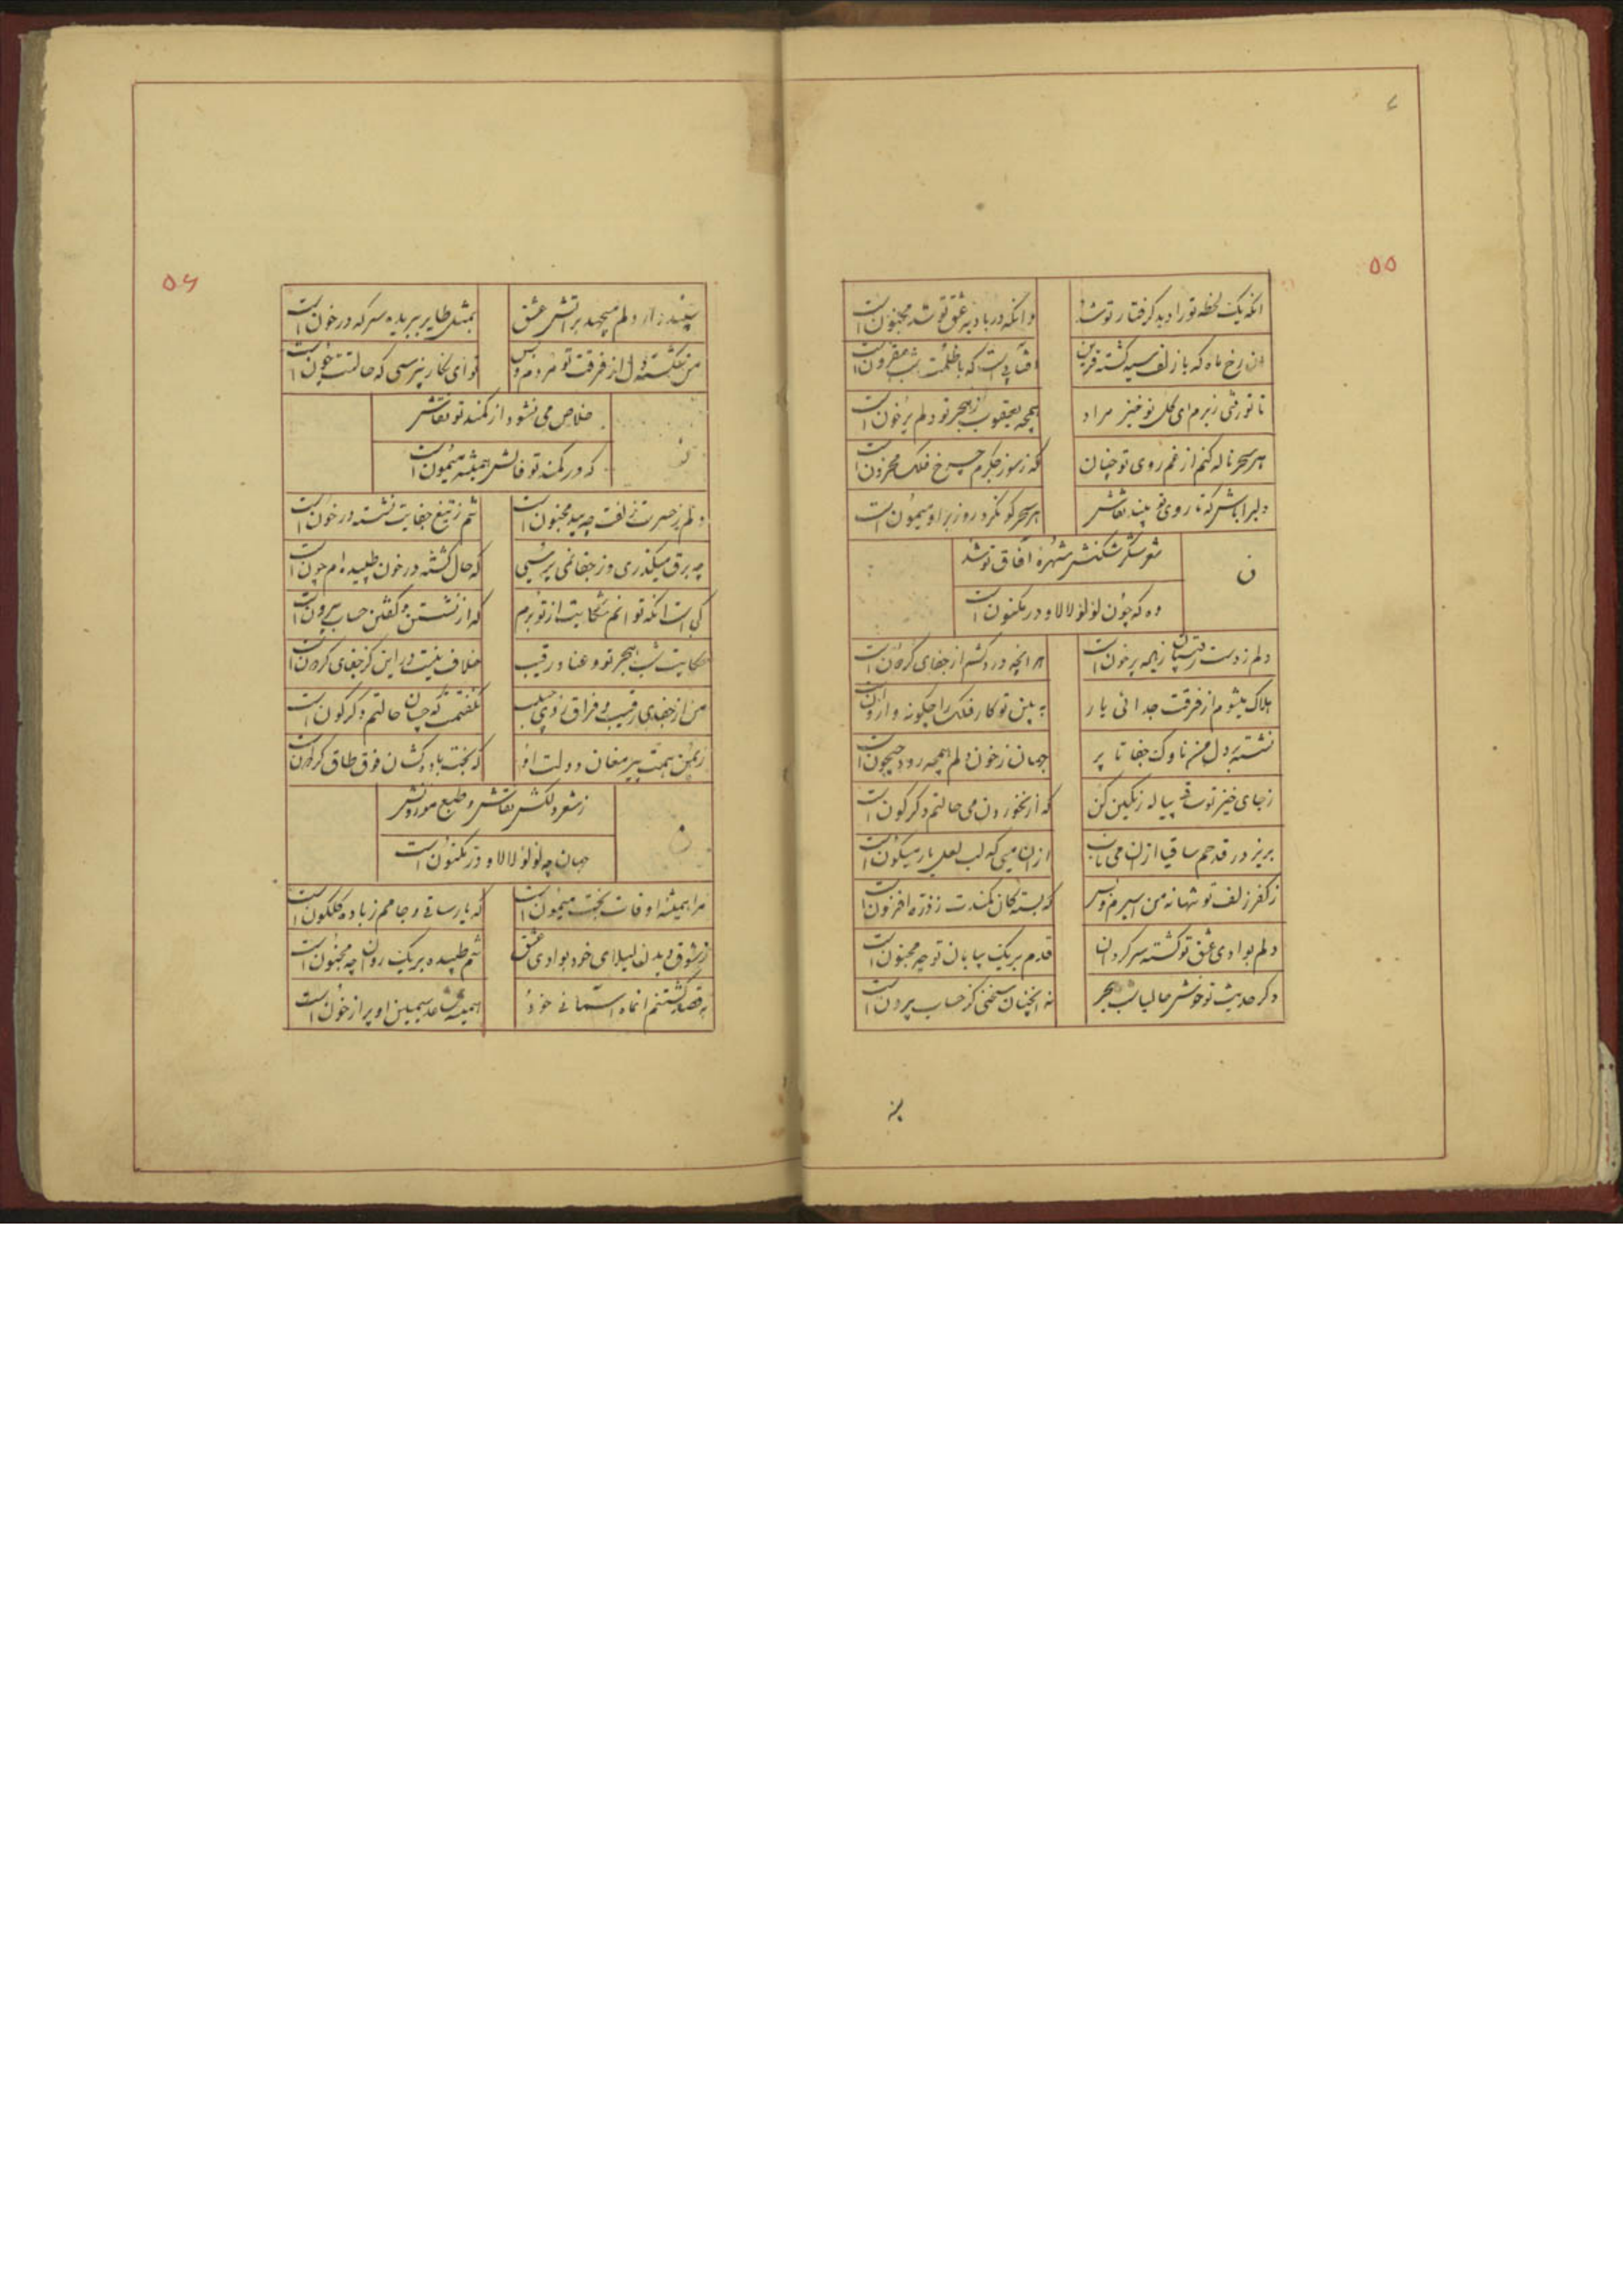 ۵۵
انکه یک لحظه تو را دید کرفتار تو شد
وانکه در بادیه عشق تو شد مجنون است
ان رخ ماه که با زلف سیه کشته قرین
افتابیست که با ظلمت شب مقرون است
تا تو رفتی ز برم ای کل نوخیز مراد
همچه یعقوب از هجر تو دلم پرخون است
هر سحر ناله کنم از غم روی تو چنان
که ز سوز جکرم چرخ فلک محزون است
دلبرا باش که تا روی تو بیند نقاش
هر سحر کو نکرد روز بر او میمون است
ن
شعر شکر شکنش شهره آفاق تو شد
وه که چون لؤلؤ لالا و در مکنون است
دلم ز دست رقیبان ز یار پرخون است
هر انچه درد کشم از جفای کردون است
هلاک میشوم از فرقت جدائی یار
به بین تو کار فلک را چکونه وارون است
نشسته بر دل من ناوک جفا تا پر
جهان ز خون دلم همچه رود جیحون است
ز جای خیز تو ساقی پیاله رنکین کن
که از نخوردن می حالتم دکرکون است
بریز در قدحم ساقیا ازان می ناب
ازان میی که لب لعل یار میکون است
ز کفر زلف تو تنها نه من اسیرم و بس
که بسته کان کمندت ز ذره افزون است
دلم بوادی عشق تو کشته سرکردان
قدم بریک بیابان تو چه مجنون است
دکر حدیث تو خوشر حالیا شب هجر
نه انچنان سخنی کز حساب بیرون است
۵۶
سپند وار دلم میجهد بر اتش عشق
بمثل طایر ببریده سر که در خون است
من شکسته دل از فرقت تو مردم و بس
تو ای نکار نپرسی که حالتت چون است
خلاص می نشود از کمند تو نقاش
که در کمند تو فالش همیشه میمون است
دلم ز حسرت زلفت چه بید مجنون است
تنم ز تیغ جفایت نشسته در خون است
چه برق میکذری وز جفا نمی پرسی
که حال کشته در خون طپیده ام چون است
کی است انکه توانم شکایت از تو برم
که از نشستن و کفتن حساب بیرون است
حکایت شب هجر تو و عناد رقیب
خلاف نیست در این کز جفای کردون است
من از جفای رقیب و فراق روی حبیب
نکفتمت که چسان حالتم دکرکون است
ز یمن همت پیر مغان و دولت او
که بخت باده کشان فوق طاق کردون است
ن
ز شعر دلکش نقاش و طبع موزونش
جهان چه لؤلؤ لالا و در مکنون است
مرا همیشه اوقات بخت میمون است
که یار ساقی و جامم ز باده کلکون است
ز شوق دیدن لیلای خود بوادی عشق
تنم طپیده بریک روان چه مجنون است
به قصد کشتنم انماه استمانی خود
همیشه ساعد سیمین او پر از خون است